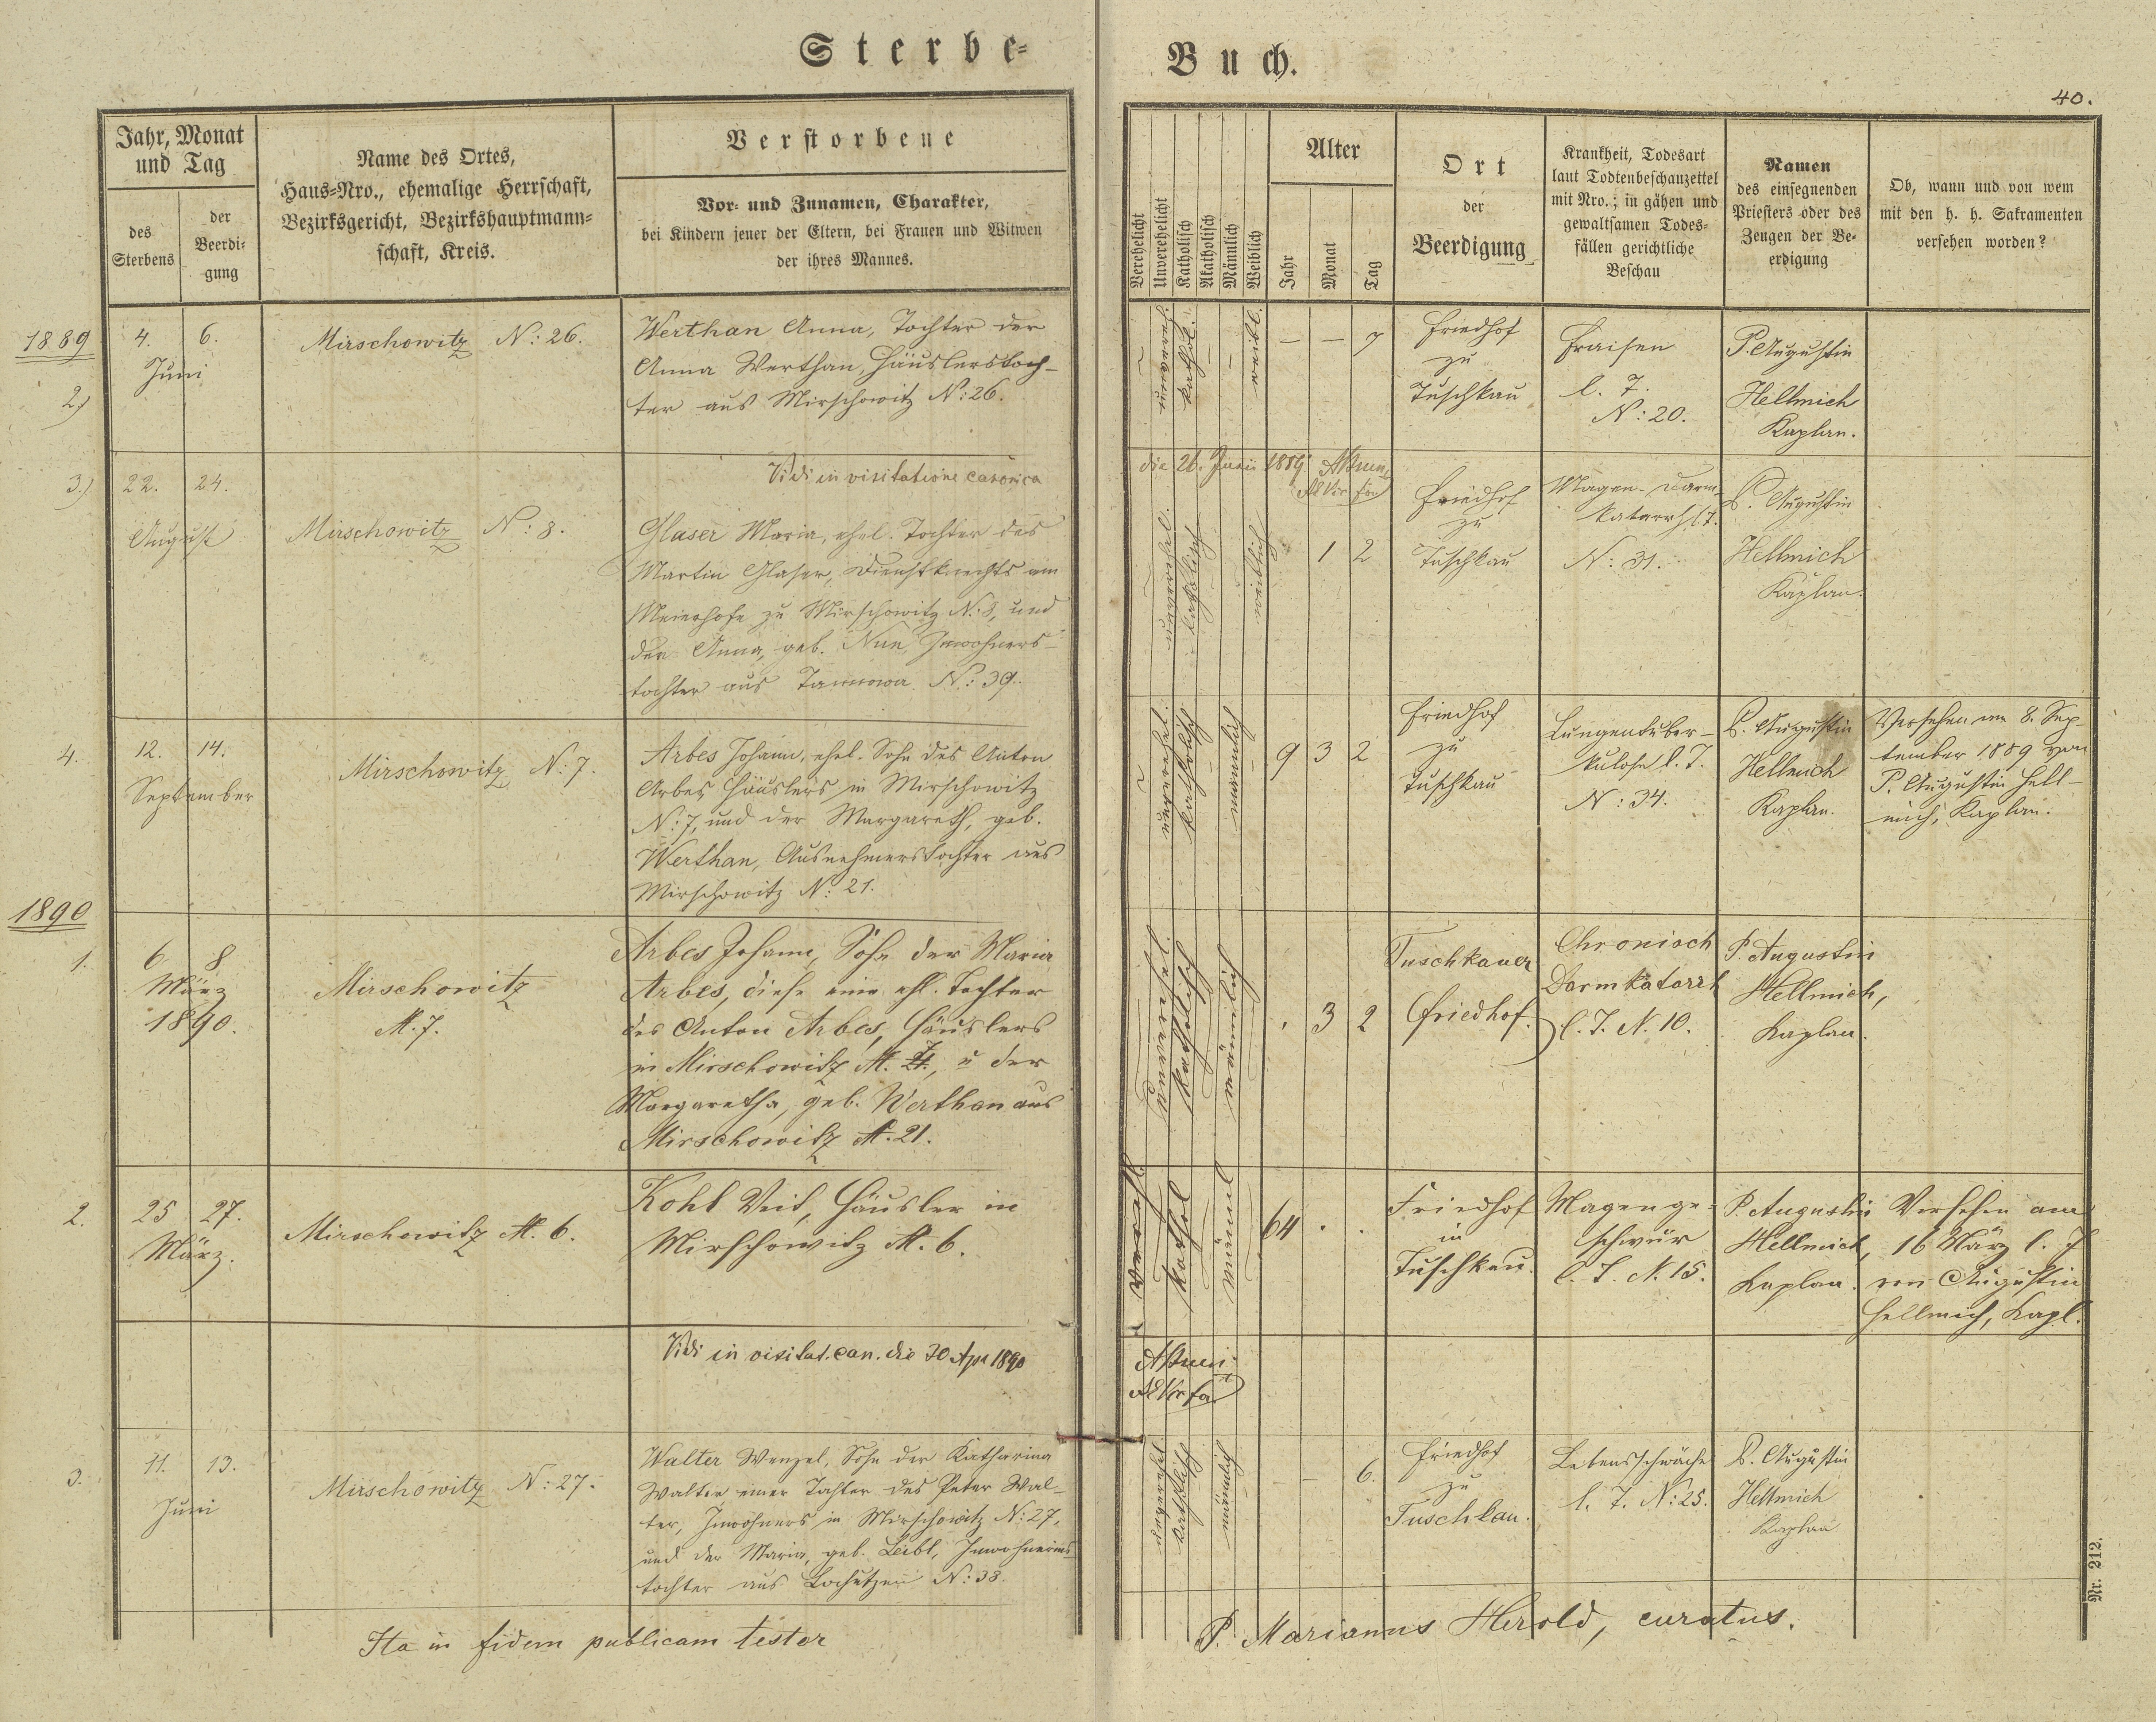 Sterbe-
Buch.
40.
Jahr, Monat
und Tag
des
Sterbens
der
Beerdi-
gung
Name des Ortes,
Haus-Nro., ehemalige Herrschaft,
Bezirksgericht, Bezirkshauptmann-
schaft, Kreis.
Verstorbene
Vor- und Zunamen, Charakter,
bei Kindern jener der Eltern, bei Frauen und Witwen
der ihres Mannes.
Verehelicht
Unverehelicht
Katholisch
Akatholisch
Männlich
Weiblich
Alter
Jahr
Monat
Tag
Ort
der
Beerdigung
Krankheit, Todesart
laut Todtenbeschauzettel
mit Nro.; in gähen und
gewaltsamen Todes-
fällen gerichtliche
Beschau
Namen
des einsegnenden
Priesters oder des
Zeugen der Be-
erdigung
Ob, wann und von wem
mit den h. h. Sakramenten
versehen worden?
1889
2.)
4. 6.
Juni
Mirschowitz N: 26.
Werthan Anna, Tochter der
Anna Werthan, Häuslerstoch-
ter aus Mirschowitz N: 26.
unvereh.
kathol.
weibl.
— — 7
Friedhof
zu
Tuschkau
Fraisen
l. J.
N: 20.
P. Augustin
Hellmich
Kaplan.
Vidi in visitatione canonica
die 26. Junii 1889
3.)
22. 24.
August
Mirschowitz N: 8.
Glaser Maria, ehel. Tochter des
Martin Glaser, Dienstknechts am
Meierhofe zu Mirschowitz N: 8, und
der Anna, geb. Inwohners-
tochter aus N: 39.
unverehel.
katholisch
weiblich
1 2
Friedhof
zu
Tuschkau
Magen-Darm-
katarrh l. J.
N: 31.
P. Augustin
Hellmich
Kaplan.
4.
12. 14.
September
Mirschowitz N: 7.
Arbes Johann, ehel. Sohn des Anton
Arbes, Häuslers in Mirschowitz
N: 7, und der Margareth, geb.
Werthan, Ausnehmerstochter aus
Mirschowitz N: 21.
unverehel.
katholisch
männlich
9 3 2
Friedhof
zu
Tuschkau
Lungentuber-
kulose l. J.
N: 34.
P. Augustin
Hellmich
Kaplan.
Versehen am 8. Sep-
tember 1889 von
P. Augustin Hell-
mich, Kaplan.
1890
1.
6. 8.
März
1890.
Mirschowitz
N. 7.
Arbes Johann, Sohn der Maria
Arbes, diese eine ehl. Tochter
des Anton Arbes, Häuslers
in Mirschowitz N. 7, u der
Margaretha, geb. Werthan aus
Mirschowitz N. 21.
unverehel.
katholisch
männlich
. 3 2
Tuschkauer
Friedhof.
Chronisch
Darmkatarrh
l. J. N. 10.
P. Augustin
Hellmich,
Kaplan.
2.
25 27.
März.
Mirschowitz N. 6.
Kohl Veit, Häusler in
Mirschowitz N. 6.
verehl.
kathol
männl
64 . .
Friedhof
in
Tuschkau.
Magenge-
schwür
l. J. N. 15.
P. Augustin
Hellmich,
Kaplan.
Versehen am
16 März l. J
von Augustin
Hellmich, Kapl.
Vidi in visitat. can. die 30 Apr 1890
3.
11. 13.
Juni
Mirschowitz N: 27.
Walter Wenzel, Sohn der Katharina
Walter, einer Tochter des Peter Wal-
ter, Inwohners in Mirschowitz N: 27,
und der Maria, geb. Leibl, Inwohners-
tochter aus Lochutzen N: 38.
unverehel.
katholisch
männlich
— — 6.
Friedhof
zu
Tuschkau.
Lebensschwäche
l. J. N: 25.
P. Augustin
Hellmich
Kaplan
Ita in fidem publicam testor
P. Marianus Herold, curatus.
Nr. 212.